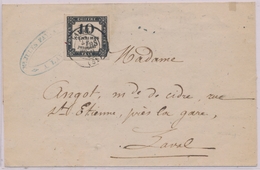 10
CENTIMES
Madame
Angot, mde de cidre, rue
St Etienne, près la gare,
Laval